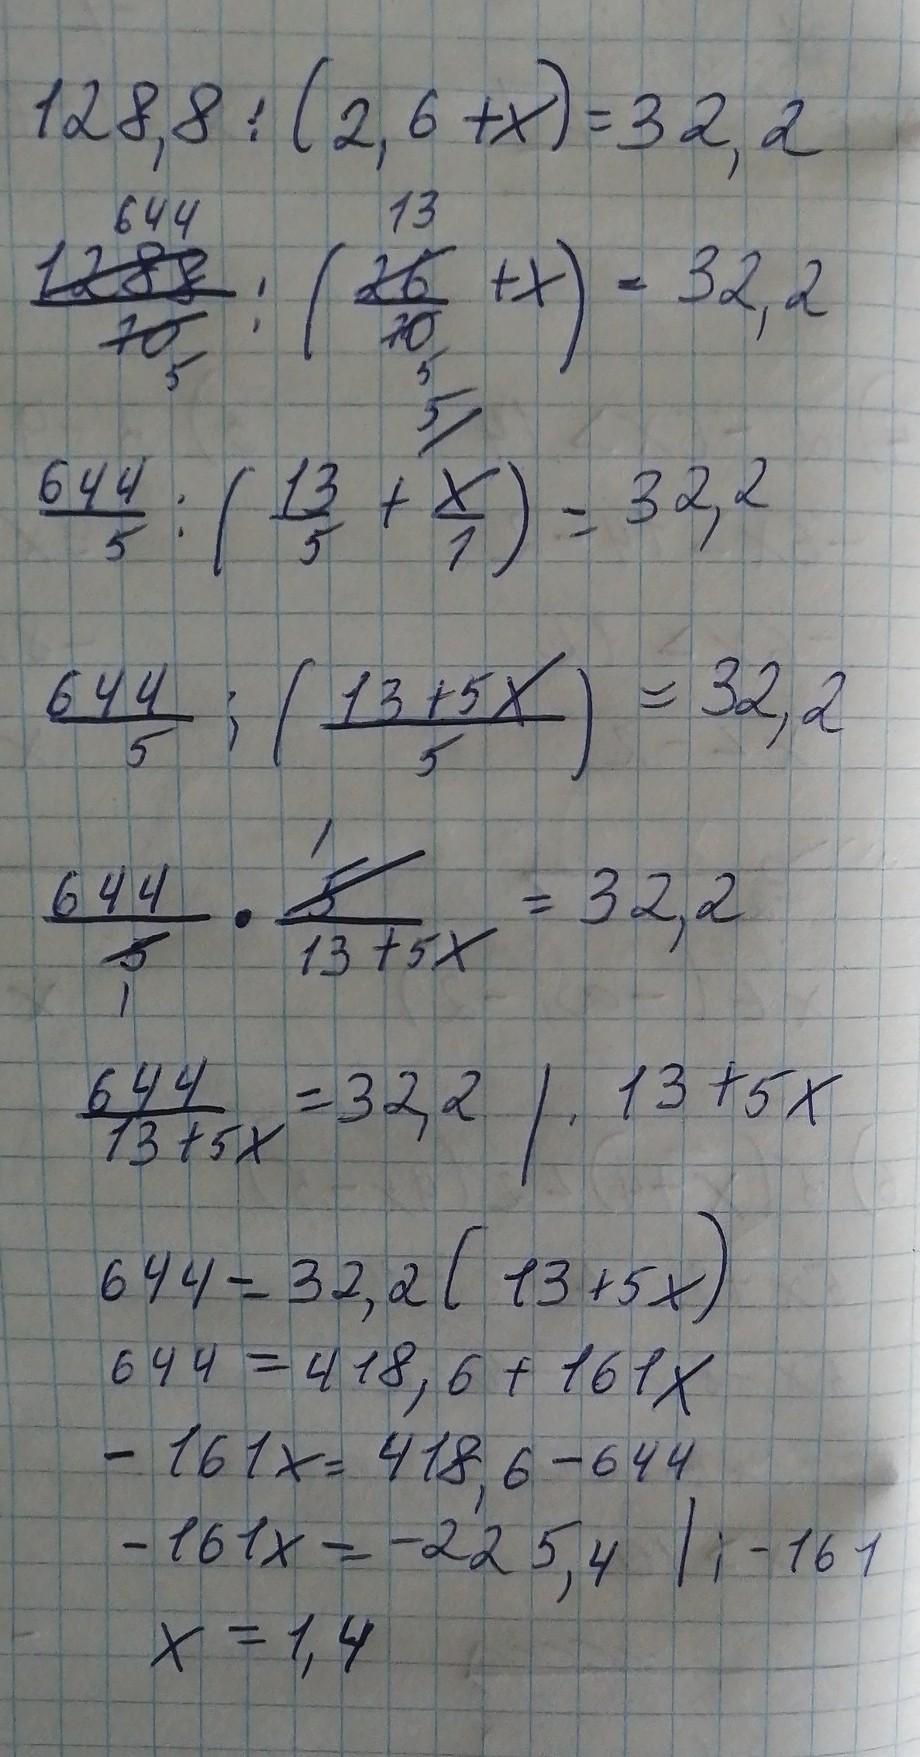 128,8 : (2,6 + x) = 32,2
644 13
1288/10 : (26/10 + x) = 32,2
5 5
5/
644/5 : (13/5 + x/1) = 32,2
644/5 : (13+5x/5) = 32,2
1
644/5 • 5/13+5x = 32,2
1
644/13+5x = 32,2 / · 13+5x
644 = 32,2 (13+5x)
644 = 418,6 + 161x
- 161x = 418,6 - 644
-161x = -225,4 | : -161
x = 1,4